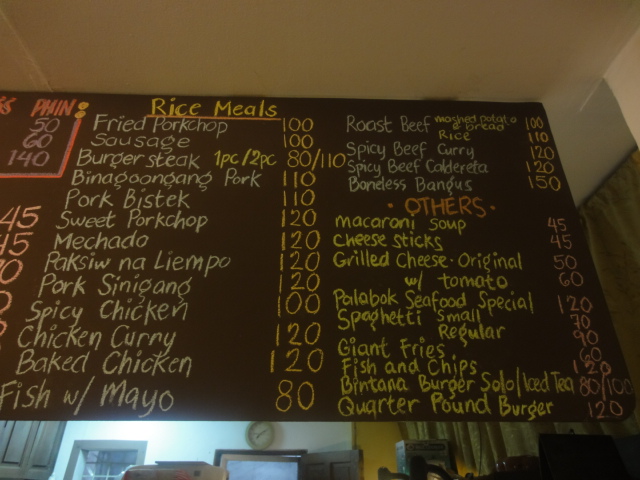 PHIN:
50
60
140
45
Rice Meals
Fried Porkchop 100
Sausage 100
Burger steak 1pc/2pc 80/110
Binagoongang Pork 110
Pork Bistek 110
Sweet Porkchop 120
Mechado 120
Paksiw na Liempo 120
Pork Sinigang 120
Spicy Chicken 100
Chicken Curry 120
Baked Chicken 120
Fish w/ Mayo 80
Roast Beef mashed potato & bread 100
Rice 110
Spicy Beef Curry 120
Spicy Beef Caldereta 120
Boneless Bangus 150
• OTHERS •
macaroni soup 45
cheese sticks 45
Grilled Cheese · Original 50
w/ tomato 60
Palabok Seafood Special 120
Spaghetti Small 70
Regular 90
Giant Fries 60
Fish and Chips 120
Bintana Burger Solo/Iced Tea 80/100
Quarter Pound Burger 120